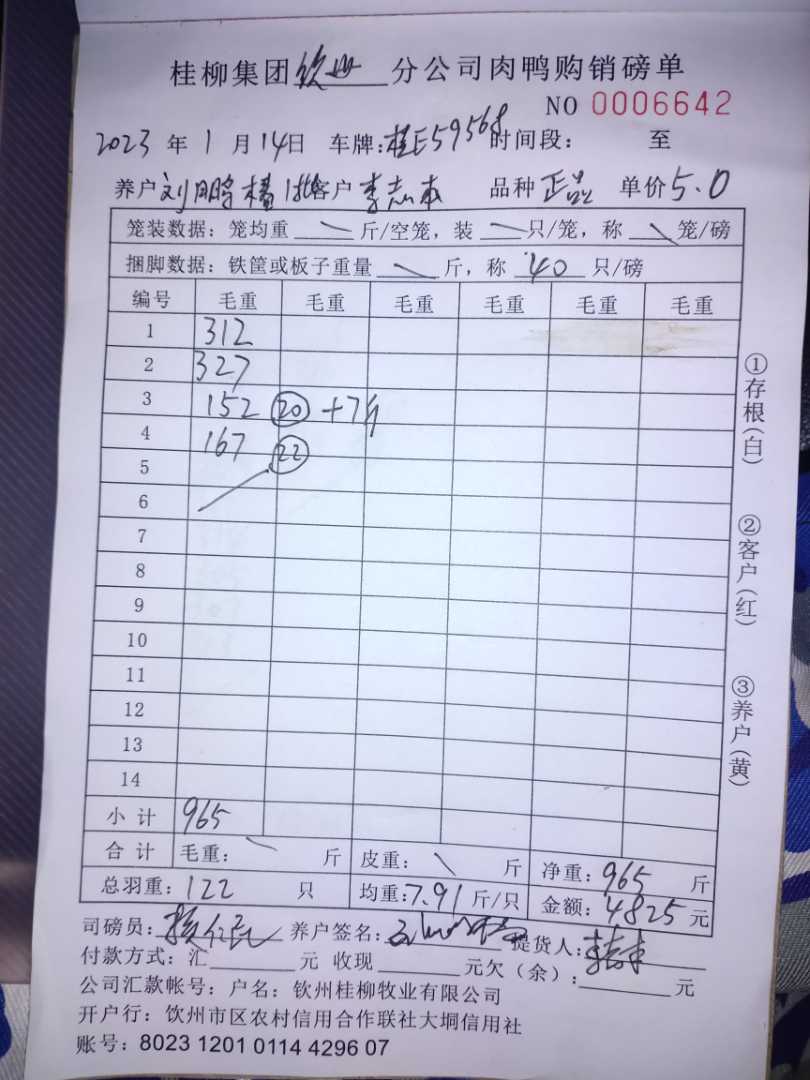 桂柳集团钦州分公司肉鸭购销磅单
NO 0006642
2023年1月14日 车牌:桂E59568时间段: 至
养户刘鹏 1批客户李志 品种正品 单价5.0
笼装数据:笼均重 \ 斤/空笼,装 \ 只/笼,称 \ 笼/磅
捆脚数据:铁筐或板子重量 \ 斤,称 40 只/磅
编号 毛重 毛重 毛重 毛重 毛重 毛重
1 312
2 327
3 152 ⑳ +7斤
4 167 ㉒
5
6
7
8
9
10
11
12
13
14
小计 965
合计 毛重: \ 斤 皮重: \ 斤 净重:965斤
总羽重:122 只 均重:7.91斤/只 金额:4825元
司磅员: 养户签名: 提货人:
付款方式:汇 元 收现 元欠(余): 元
公司汇款帐号:户名:钦州桂柳牧业有限公司
开户行:饮州市区农村信用合作联社大垌信用社
账号:8023 1201 0114 4296 07
①存根(白)
②客户(红)
③养户(黄)